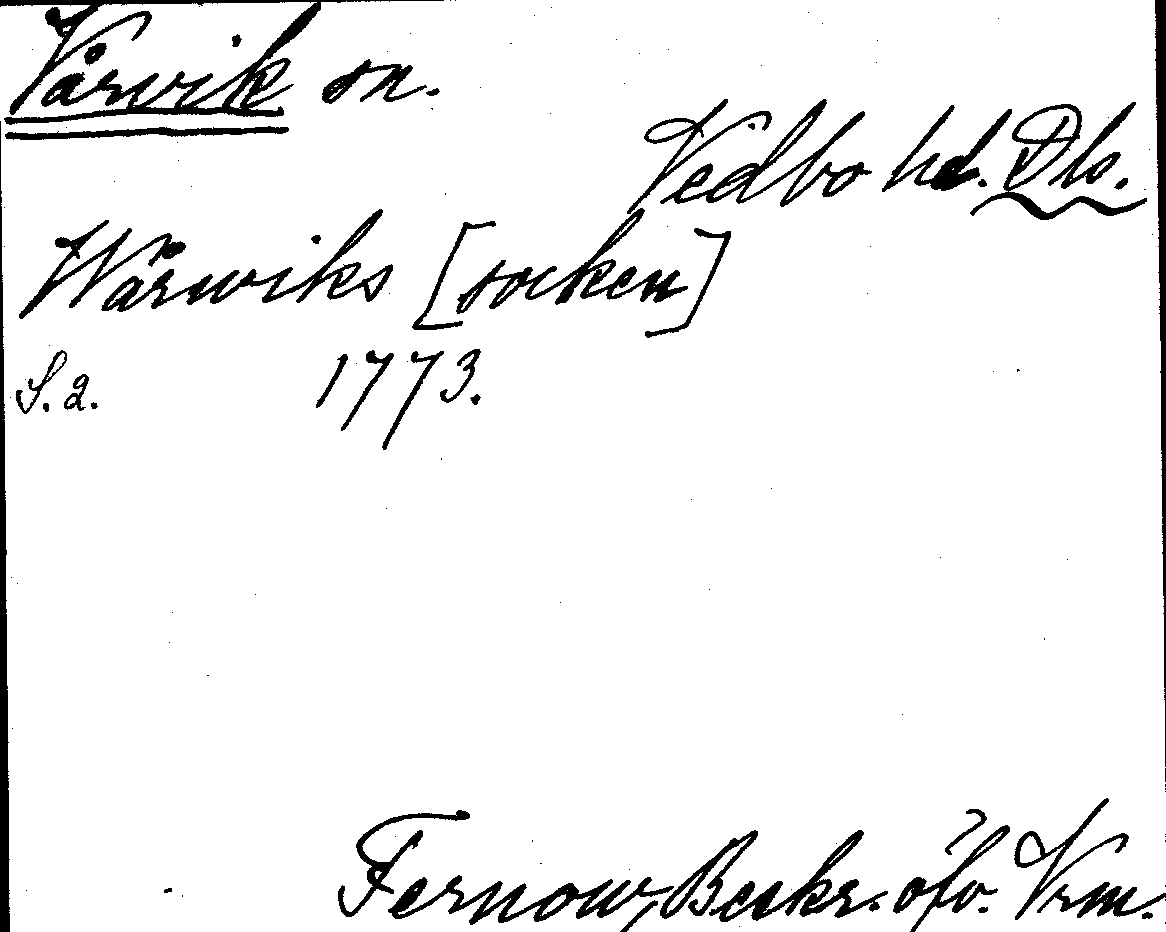 Vårvik sn.
Vedbo hd. Dls.
Wårwiks [socken]
S. 2. 1773.
Fernow, Beskr. öfv. Vrm.